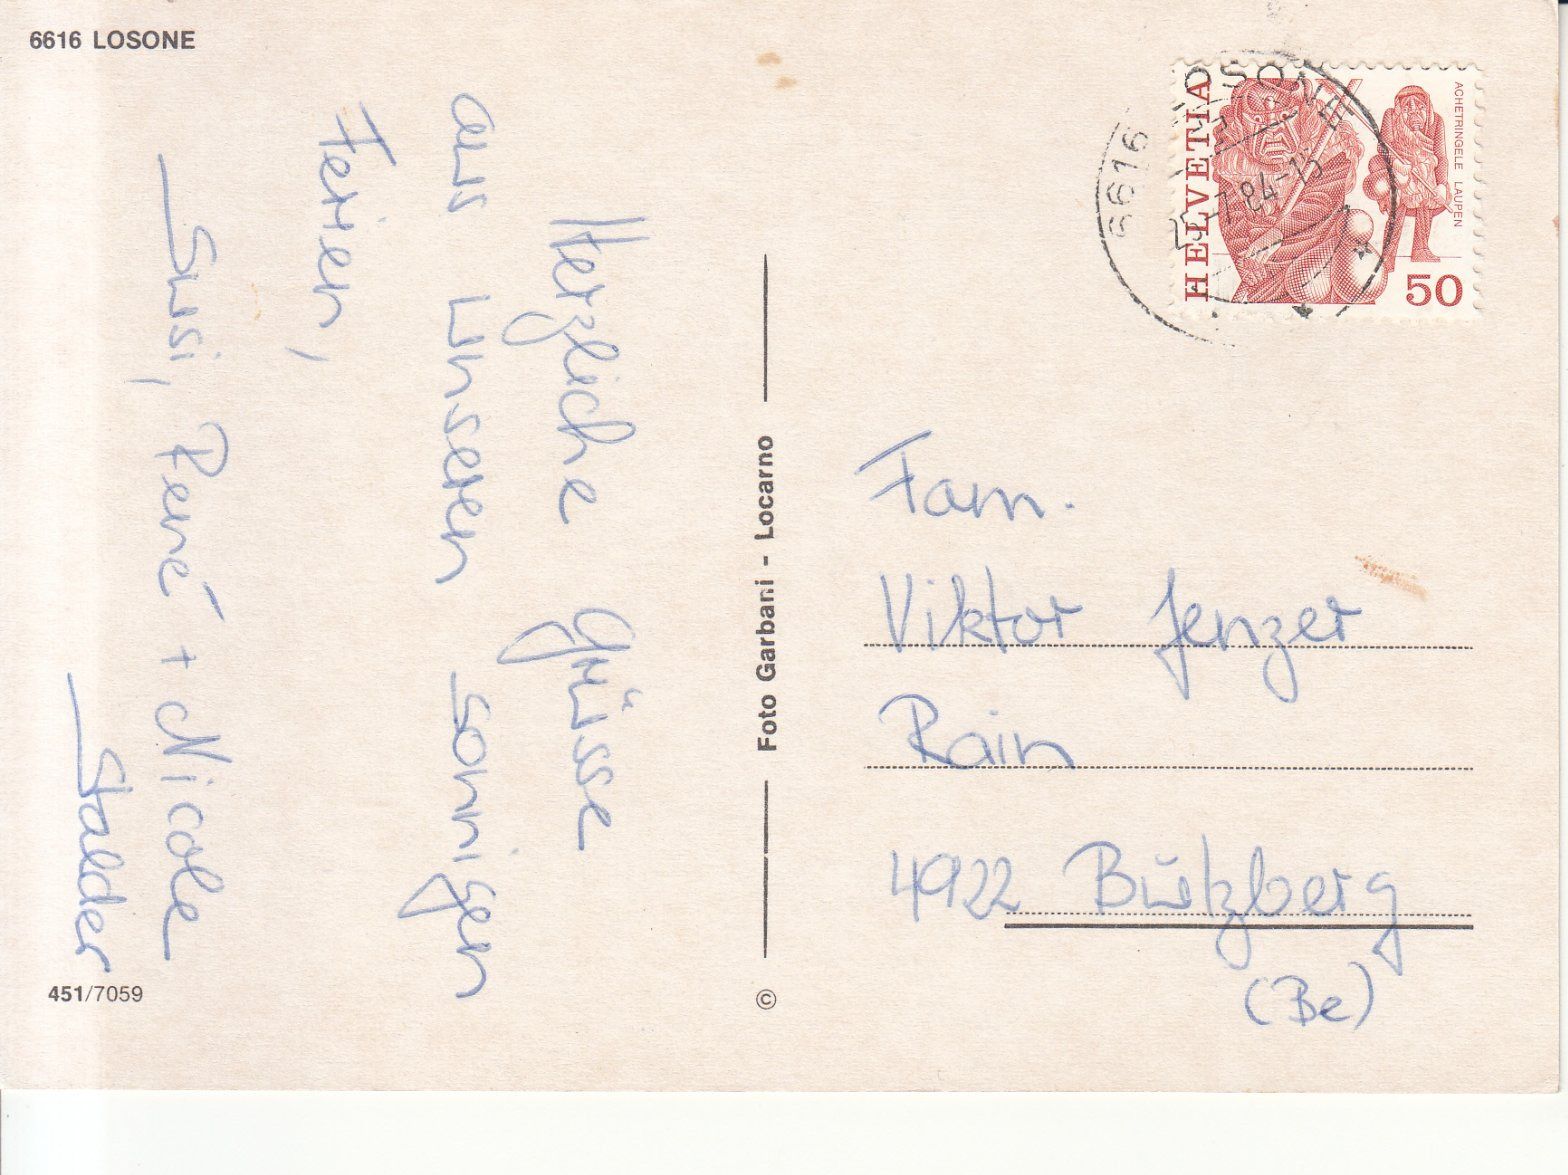 6616 LOSONE
Herzliche Grüsse
aus unseren sonnigen
Ferien,
Susi, René + Nicole
Stalder
451/7059
Foto Garbani - Locarno
©
HELVETIA
ACHETRINGELE LAUPEN
50
6616 LOSONE
Fam.
Viktor Jenzer
Rain
4922 Bützberg
(Be)